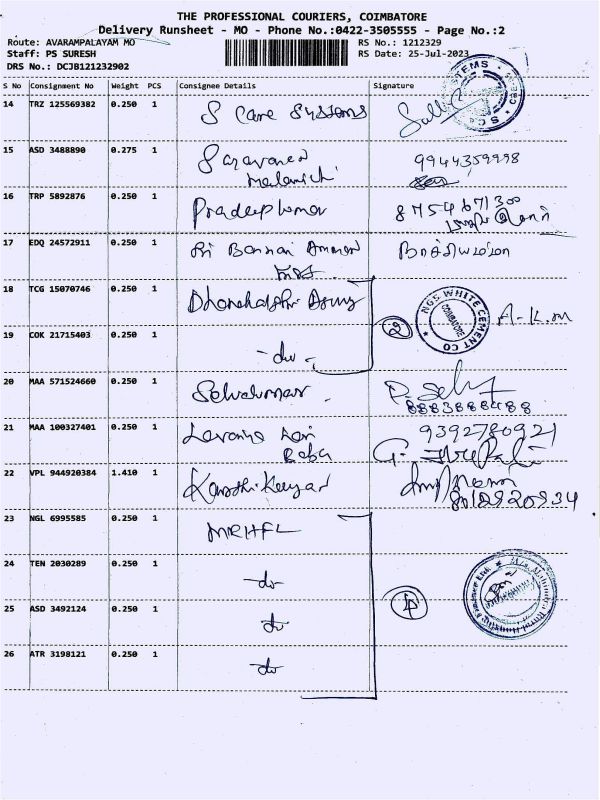 THE PROFESSIONAL COURIERS, COIMBATORE
Delivery Runsheet - MO - Phone No.:0422-3505555 - Page No.:2
Route: AVARAMPALAYAM MO
RS No.: 1212329
Staff: PS SURESH
RS Date: 25-Jul-2023
DRS No.: DCJB121232902
S No Consignment No Weight PCS Consignee Details Signature
14 TRZ 125569382 0.250 1 S Care Systems
15 ASD 3488890 0.275 1 Saravanen 9944359998
16 TRP 5892876 0.250 1 Pradeepkumar 8754671300
17 EDQ 24572911 0.250 1 Sri Bannari Amman
18 TCG 15070746 0.250 1 2 NGS WHITE CEMENT CO COIMBATORE A-K.m
19 COK 21715403 0.250 1 -do-
20 MAA 571524660 0.250 1 Selvakumar
8883888488
21 MAA 100327401 0.250 1 9392780921
Babu
22 VPL 944920384 1.410 1
23 NGL 6995585 0.250 1 MRHFL
24 TEN 2030289 0.250 1 -do-
25 ASD 3492124 0.250 1 do 4
26 ATR 3198121 0.250 1 -do